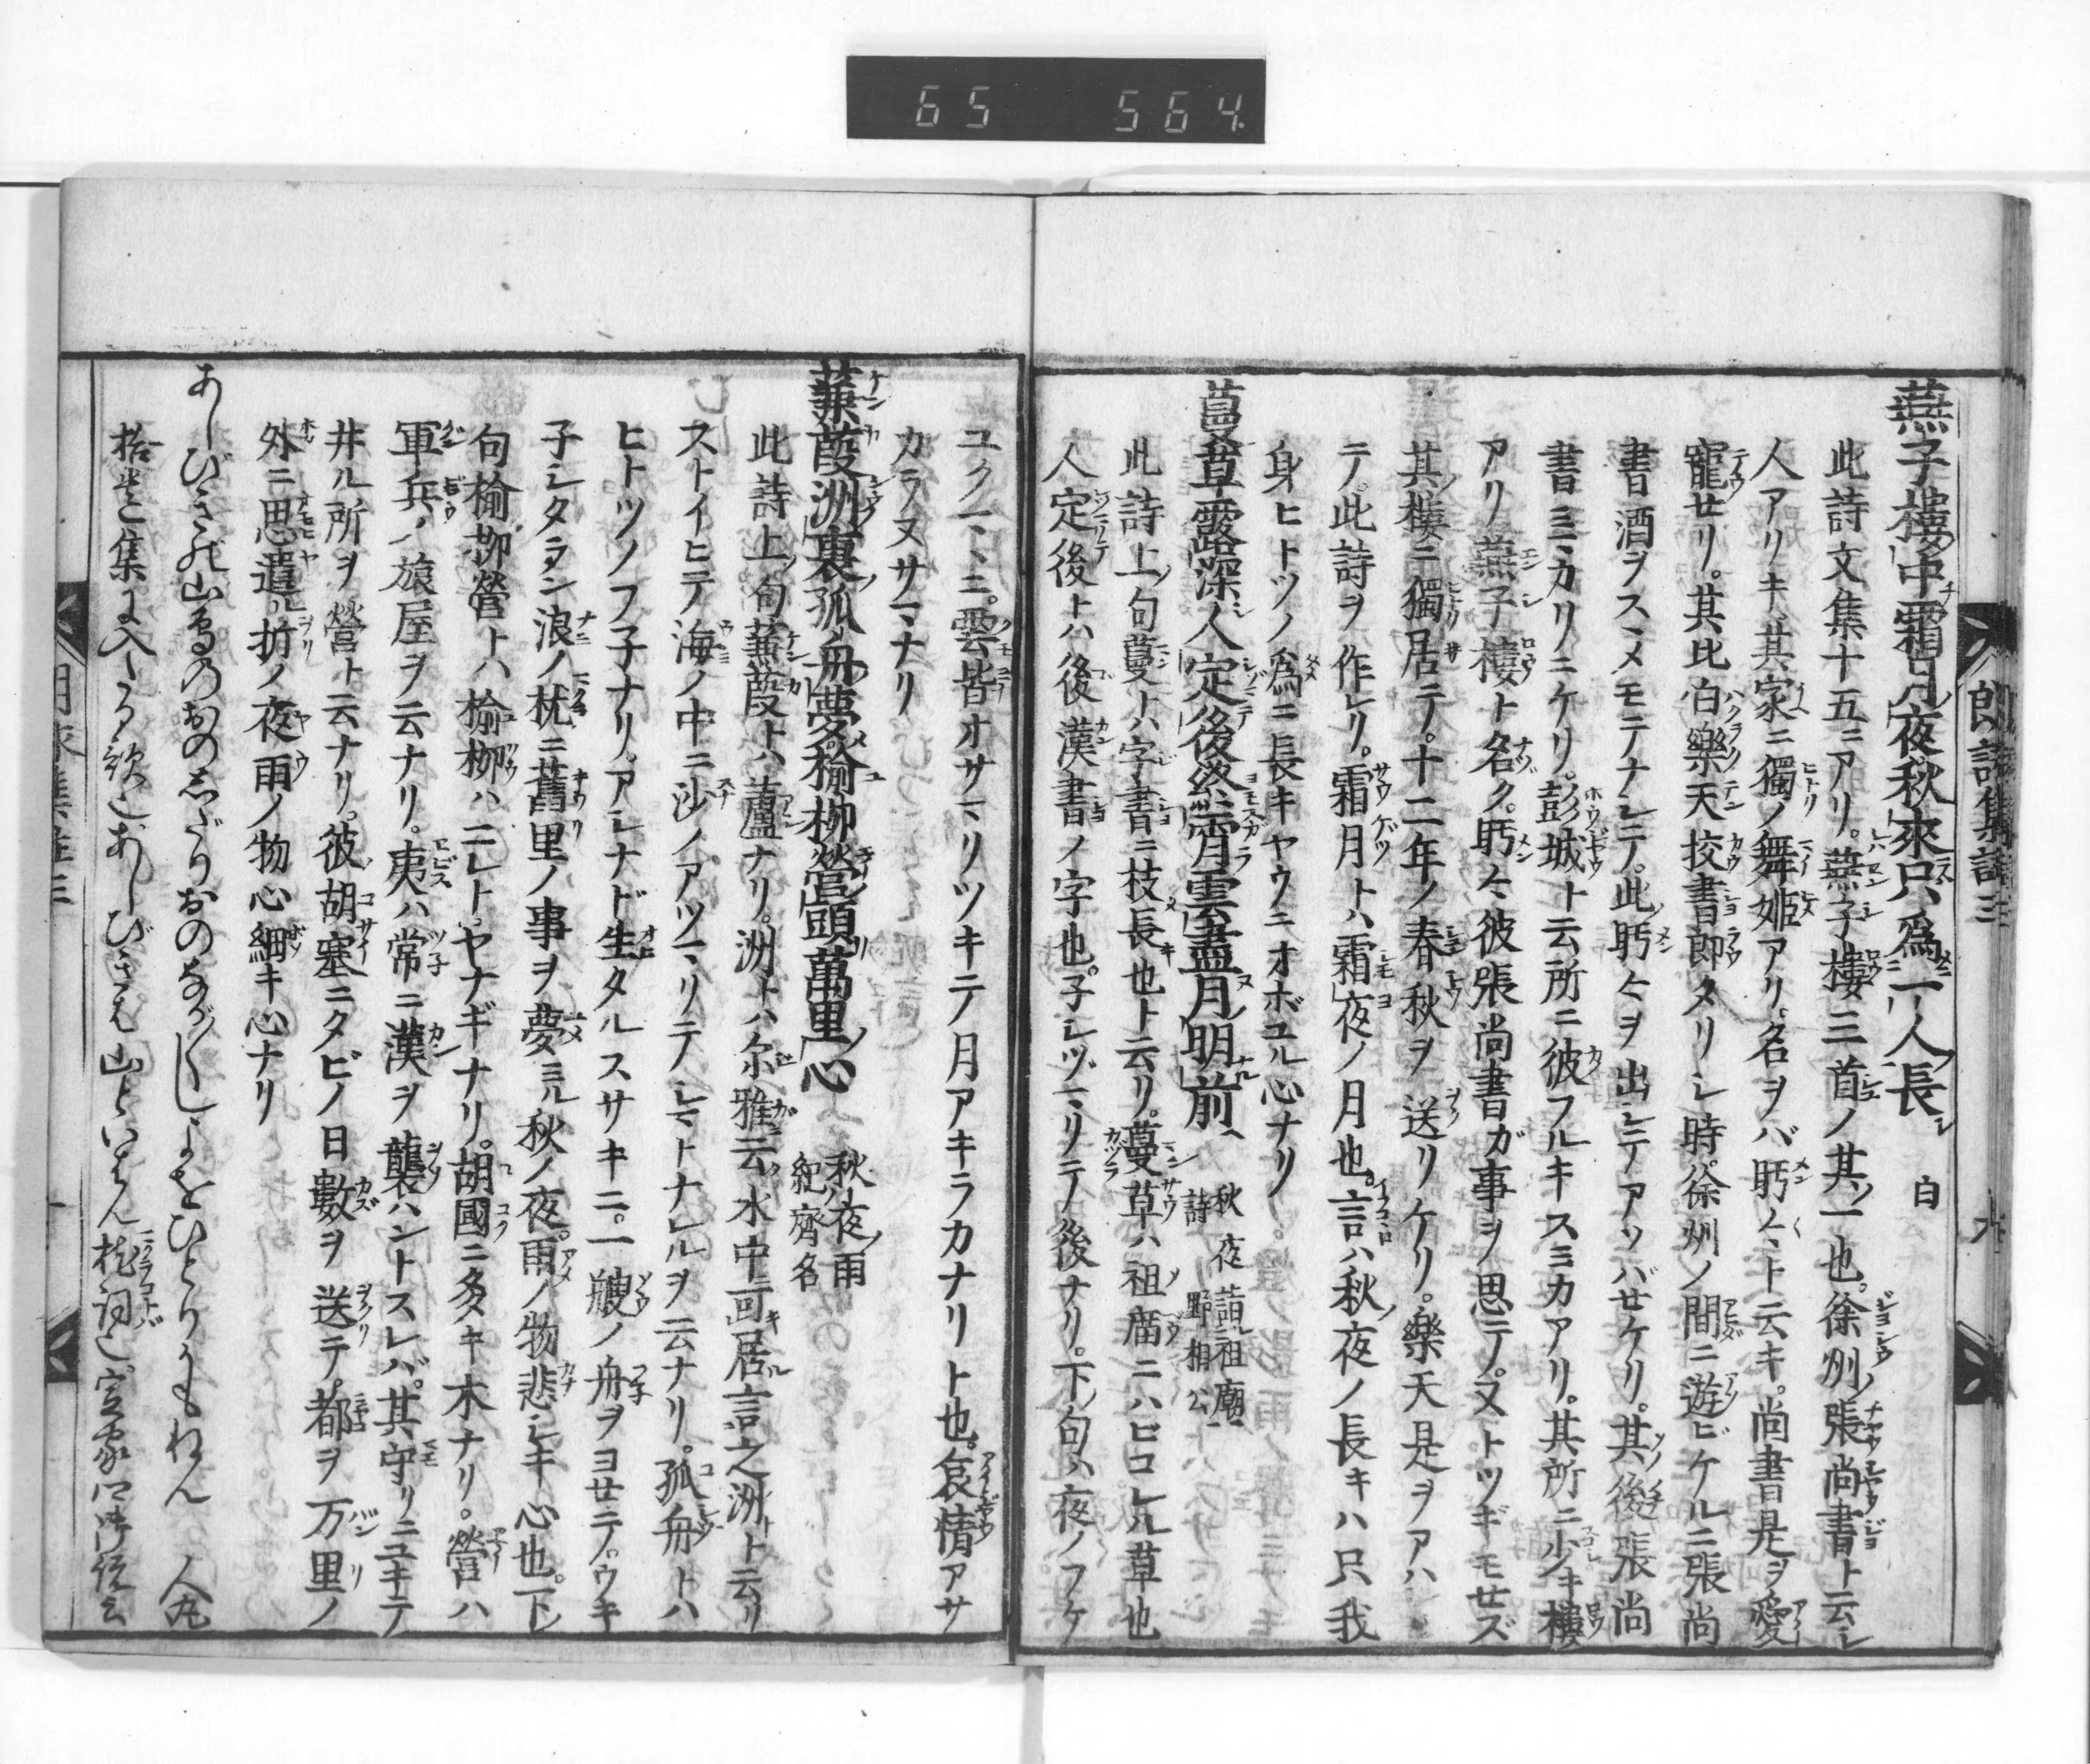 65 564.
朗詠集註三
燕子樓中霜月夜秋來只爲一人長 白
此詩文集十五ニアリ。燕子樓三首ノ其一也。徐州ノ張尚書ト云シ
人アリキ。其家ニ獨ノ舞姫アリ。名ヲバ眄〻ト云キ。尚書是ヲ愛
寵セリ。其比白樂天挍書郎タリシ時。徐州ノ間ニ遊ビケルニ張尚
書酒ヲスヽメモテナシテ。此眄〻ヲ出シテアソバセケリ。其後張尚
書ミマカリニケリ。彭城ト云所ニ彼フルキスミカアリ。其所ニ少キ樓
アリ燕子樓ト名ク。眄〻彼張尚書ガ事ヲ思テ。又トツギモセズ
其樓ニ獨居テ。十二年ノ春秋ヲ送リケリ。樂天是ヲアハ
テ。此詩ヲ作レリ。霜月トハ霜夜ノ月也。言ハ秋夜ノ長キハ只我
身ヒトツノ爲ニ長キヤウニオボユル心ナリ
蔓草露深人定後終宵雲盡月明前 秋夜詣祖廟詩 野相公
此詩上ノ句蔓トハ字書ニ枝長也ト云リ。蔓草ハ祖廟ニハビコレル草也
人定後トハ後漢書ノ字也。子シヅマリテ後ナリ。下ノ句ハ夜ノフケ
ユクマヽニ。雲皆オサマリツキテ月アキラカナリト也。哀情アサ
カラヌサマナリ
蒹葭洲裏孤舟夢楡柳營頭萬里心 秋夜雨 紀齊名
此詩上ノ句蒹葭トハ蘆ナリ。洲トハ尓雅云水中可居言之洲ト云リ
ストイヒテ海ノ中ニ沙ノアツマリテシマトナレルヲ云ナリ。孤舟トハ
ヒトツノフ子ナリ。アシナド生タルスサキニ。一艘ノ舟ヲヨセテ。ウキ
子シタラン浪ノ枕ニ舊里ノ事ヲ夢ミル秋ノ夜。雨ノ物悲シキ心也。下ノ
句楡柳營トハ楡柳ハニレト。ヤナギナリ。胡國ニ多キ木ナリ。營ハ
軍兵ノ旅屋ヲ云ナリ。夷ハ常ニ漢ヲ襲ハントスレバ。其守リニユキテ
井ル所ヲ營ト云ナリ。彼胡塞ニタビノ日數ヲ送テ。都ヲ万里ノ
外ニ思遣ル折ノ夜雨ノ物心細キ心ナリ
あしびきの山鳥のおのしだりおのながながしよをひとりかもねん 人丸
拾遺集に入たる歌也あしびきは山といはん枕詞也定家口伝云